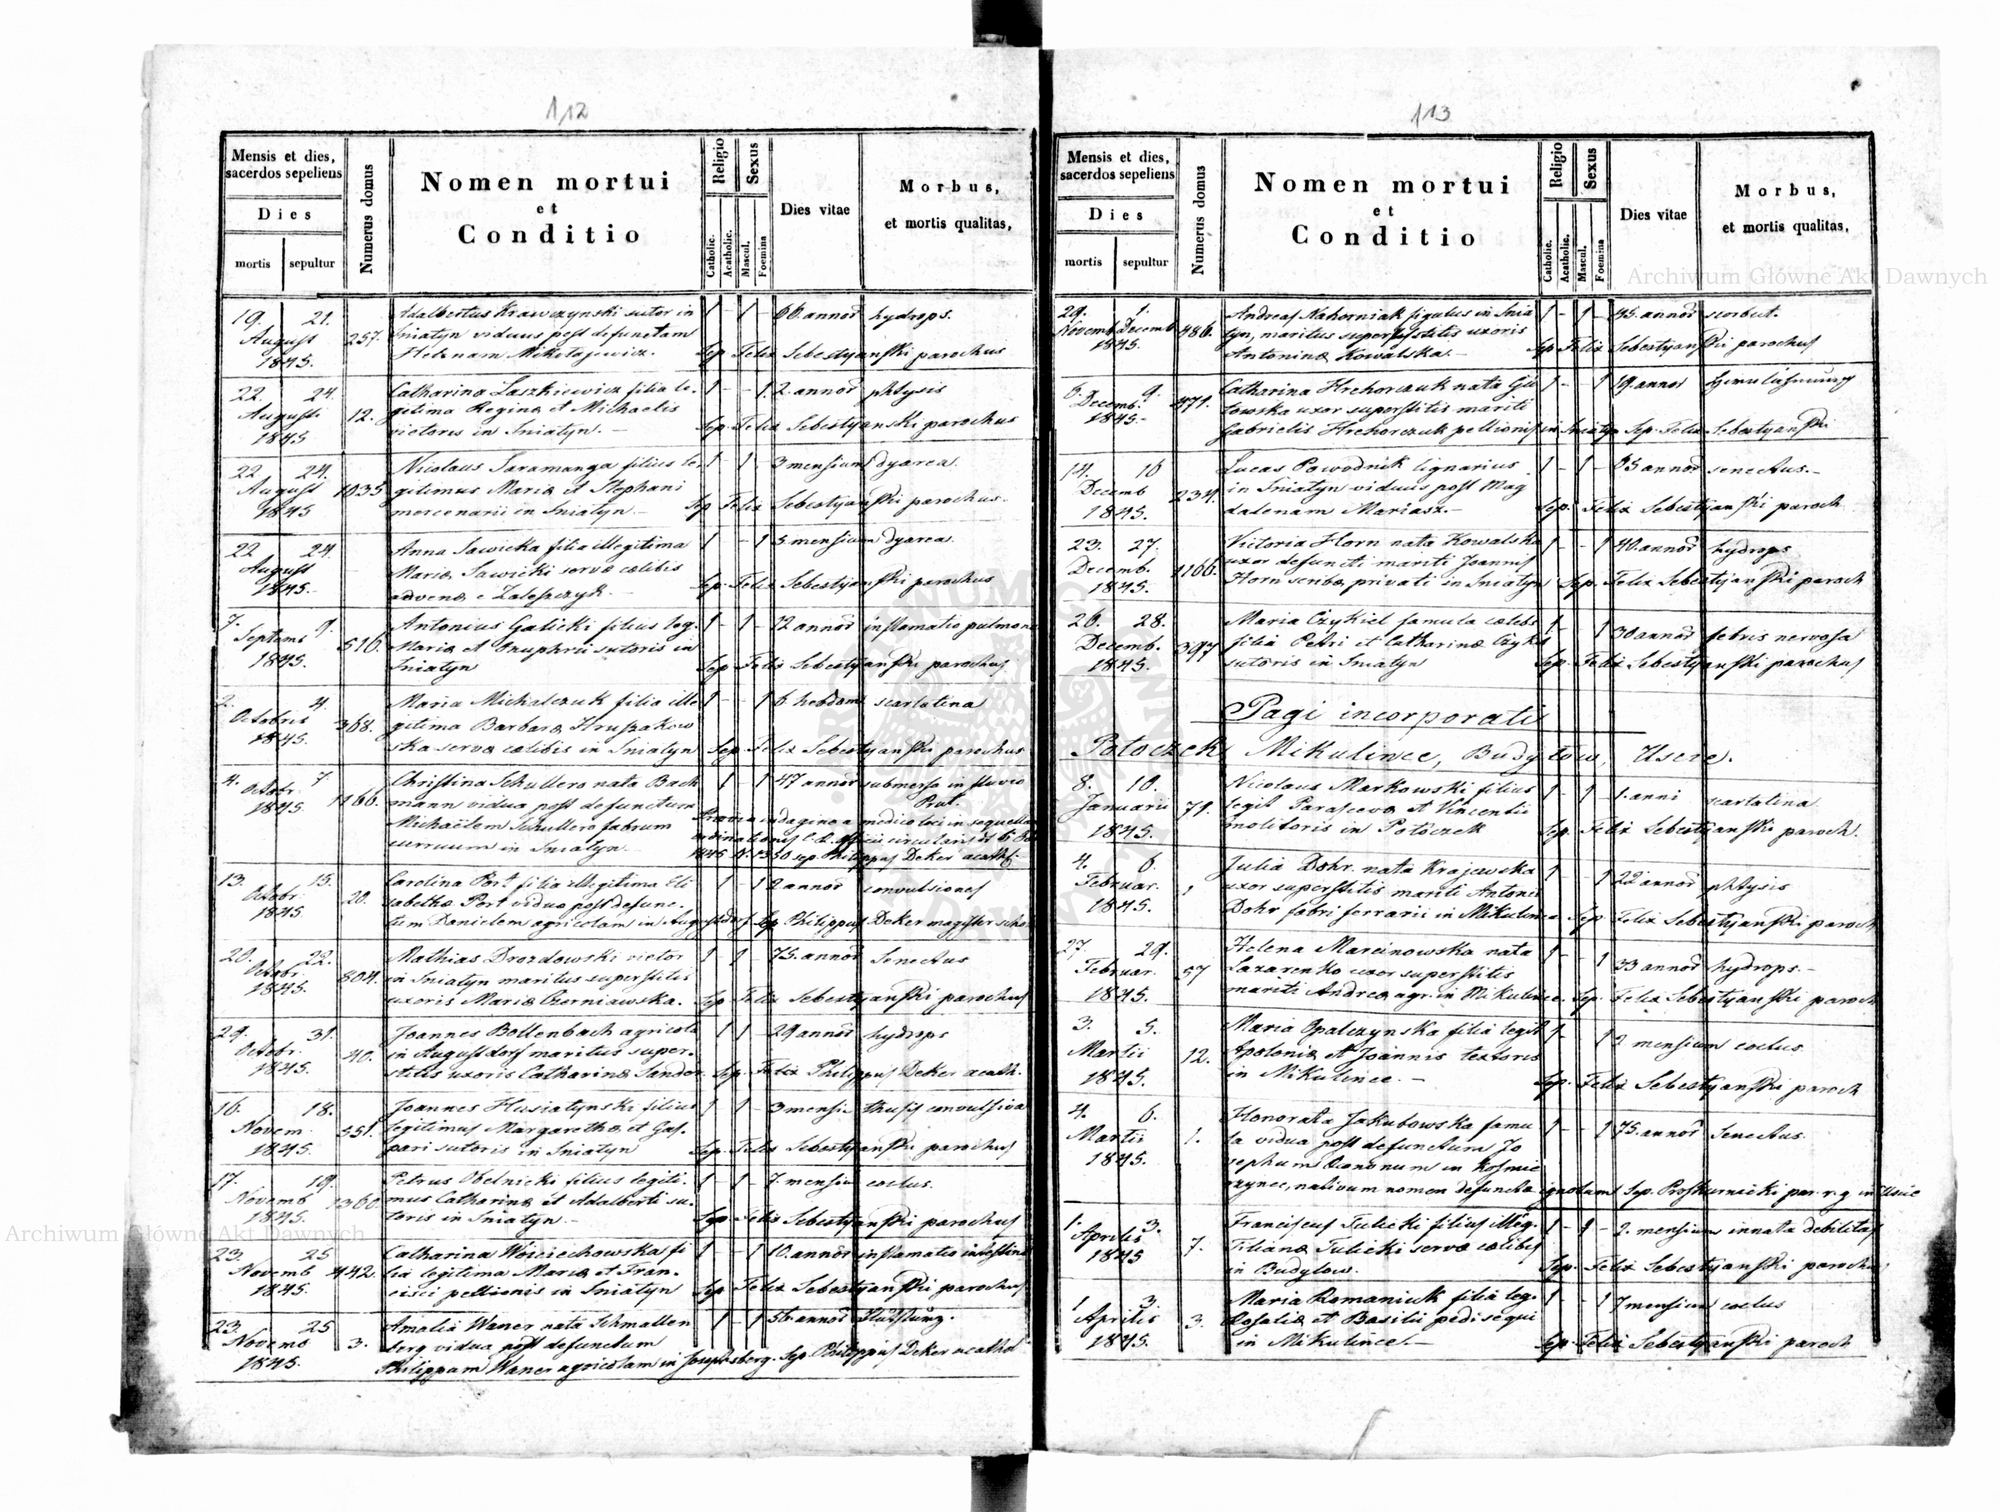 112
Mensis et dies,
sacerdos sepeliens
Dies
mortis sepultur
Numerus domus
Nomen mortui
et
Conditio
Religio
Catholic.
Acatholic.
Sexus
Mascul.
Foemina
Dies vitae
Morbus,
et mortis qualitas,
19. 21. Adalbertus Krawczynski sutor in 1 - 1 - 66. annor hydrops.
August 257. Sniatyn viduus post defunctam
1845. Helenam Mikołajewicz. Sep. Felix Sebestyanski parochus
22. 24. Catharina Laszkiewicz filia le- 1 - - 1. 2. annor phtysis
Augusti 12. gitima Reginæ et Michaelis
1845 victoris in Sniatyn. - Sep. Felix Sebestyanski parochus
22. 24. Nicolaus Saramanga filius le- 1 - 1 - 3 mensium dyarea.
August 1035 gitimus Mariæ et Stephani
1845 mercenarii in Sniatyn. - Sep Felix Sebestyanski parochus.
22 24. Anna Sawicka filia illegitima 1 - 1 5 mensium dyarea.
August Mariæ Sawicki servæ cælibis
1845. advenæ e Zaleszczyk. - Sep. Felix Sebestyanski parochus
7. 9. Antonius Galicki filius leg. 1 - 1 - 72 annor inflamatio pulmon
Septemb 516. Mariæ et Onuphrii sutoris in
1845. Sniatyn Sep Felix Sebestyanski parochus
2. 4. Maria Michalczuk filia ille 1 - - 1 6 hebdom scarlatina
Octobris 368. gitima Barbaræ Hruszakow
1845. ska servæ cælibis in Sniatyn Sep Felix Sebestyanski parochus
4. 7. Christina Schullero nata Bach 1 - 1 47 annor submersa in fluvio
Octobr. 1166. mann vidua post defunctum Prut.
1845. Michaëlem Schullero fabrum Prævia indagine a medico loci in sequellam
curruum in Sniatyn. 1845 N. 1350 sep. Philippus Deker acath.
13. 15. Carolina Port filia illegitima Eli 1 - 1 2 annor convulsiones
Octobr. 20. sabethæ Port vidua post defunc-
1845 tum Danielem agricolam in Augustdorf Sep Philippus Deker magister schol
20. 22. Mathias Drozdowski victor 1 - 1 - 75. annor Senectus
Octobr. 804. in Sniatyn maritus superstitis
1845. uxoris Mariæ Czerniawska. Sep Felix Sebestyanski parochus
29. 31. Joannes Bollenbach agricola 1 1 - 29 annor hydrops
Octobr. 40. in Augustdorf maritus super-
1845. stitis uxoris Catharinæ Sander. Sep. Felix Philippus Deker acath.
16. 18. Joannes Husiatynski filius 1 - 1 - 3 mensi- thusis convulsiva
Novem. 551. legitimus Margarethæ et Gas-
1845. pari sutoris in Sniatyn Sep. Felix Sebestyanski parochus
17. 19. Petrus Obelnicki filius legiti- 1 - 1 - 7 mensiu coctus.
Novemb 1360. mus Catharinæ et Adalberti su-
1845. toris in Sniatyn. - Sep Felix Sebestyanski parochus
23. 25 Catharina Wojciechowska fi 1 - - 1 10. annor inflamatio intestin
Novemb 442. lia legitima Mariæ et Fran-
1845. cisci pellionis in Sniatyn Sep Felix Sebestyanski parochus
23. 25 Amalia Waner nata Schmallen 1 - 1 56 annor
Novemb 3. berg vidua post defunctum
1845. Philippum Waner agricolam in Josephsberg. Sep. Philippus Deker acathol
113
Mensis et dies,
sacerdos sepeliens
Dies
mortis sepultur
Numerus domus
Nomen mortui
et
Conditio
Religio
Catholic.
Acatholic.
Sexus
Mascul.
Foemina
Dies vitae
Morbus,
et mortis qualitas,
29. 1. Andreas Nahorniak figulus in Snia 1 - 1 - 45. annor scorbut.
Novemb Decemb 486. tyn, maritus superstitis uxoris
1845. Antoninæ Kowalska. - Sep. Felix Sebestyanski parochus
9. Catharina Hrehorczuk nata Gu 1 - 1 19. annor
Decemb. 471. towska uxor superstitis mariti
1845. Gabrielis Hrehorczuk pellionis in Sniatyn Sep. Felix Sebestyanski
14. 16 Lucas Powodnik lignarius 1 - 1 - 65 annor senectus. -
Decemb 234. in Sniatyn viduus post Mag
1845. dalenam Mariasz. - Sep. Felix Sebestyanski paroch
23. 27. Victoria Horn nata Kowalska 1 - - 1 40. annor hydrops
Decemb. 1166. uxor defuncti mariti Joannis
1845. Horn scribæ privati in Sniatyn Sep. Felix Sebestyanski paroch
26. 28. Maria Czykiel famula cælebs 1 - 1 30 annor febris nervosa
Decemb. 397 filia Petri et Catharinæ Czykiel
1845. sutoris in Sniatyn Sep. Felix Sebestyanski parochus
Pagi incorporati
Potoczek, Mikulince, Budyłow, Uscie.
8. 10. Nicolaus Markowski filius 1 - 1 - 1. anni scarlatina
Januarii 71. legit Parascevæ et Vincentii
1845. molitoris in Potoczek Sep. Felix Sebestyanski paroch.
4. 6. Julia Dohr nata Krajewska 1 - 1 22 annor phtysis
Februar. 1 uxor superstitis mariti Antonii
1845. Dohr fabri ferrarii in Mikulince Sep. Felix Sebestyanski paroch
27 29. Helena Marcinowska nata 1 - - 1 33 annor hydrops. -
Februar. 57 Lazarenko uxor superstitis
1845. mariti Andreæ agr. in Mikulince. Sep. Felix Sebestyanski paroch
3. 5. Maria Opalczynska filia legit 1 - 1 2 mensium coctus
Martii 12. Apoloniæ et Joannis textoris
1845. in Mikulince. - Sep. Felix Sebestyanski paroch
4. 6. Honorata Jakubowska famu 1 - - 1 75. annor Senectus.
Martii 1. la vidua post defunctum Jo
1845. sephum in Kosmie
rzynce, nativum nomen defunctæ ignotum Sep. Proskurnicki par. r. g. in Uscie
1. 3. Franciscus Tulicki filius illeg. 1 - 1 - 2. mensium innata debilitas
Aprilis 7. Tulicki servæ cælibis
1845 in Budylow. Sep. Felix Sebestyanski parochus
1 3 Maria Romaniuk filia leg. 1 - - 1 7 mensium coctus
Aprilis 3. Rosaliæ et Basilii pedisequi
1845. in Mikulince. - Sep. Felix Sebestyanski paroch
Archiwum Główne Akt Dawnych
Archiwum Główne Akt Dawnych